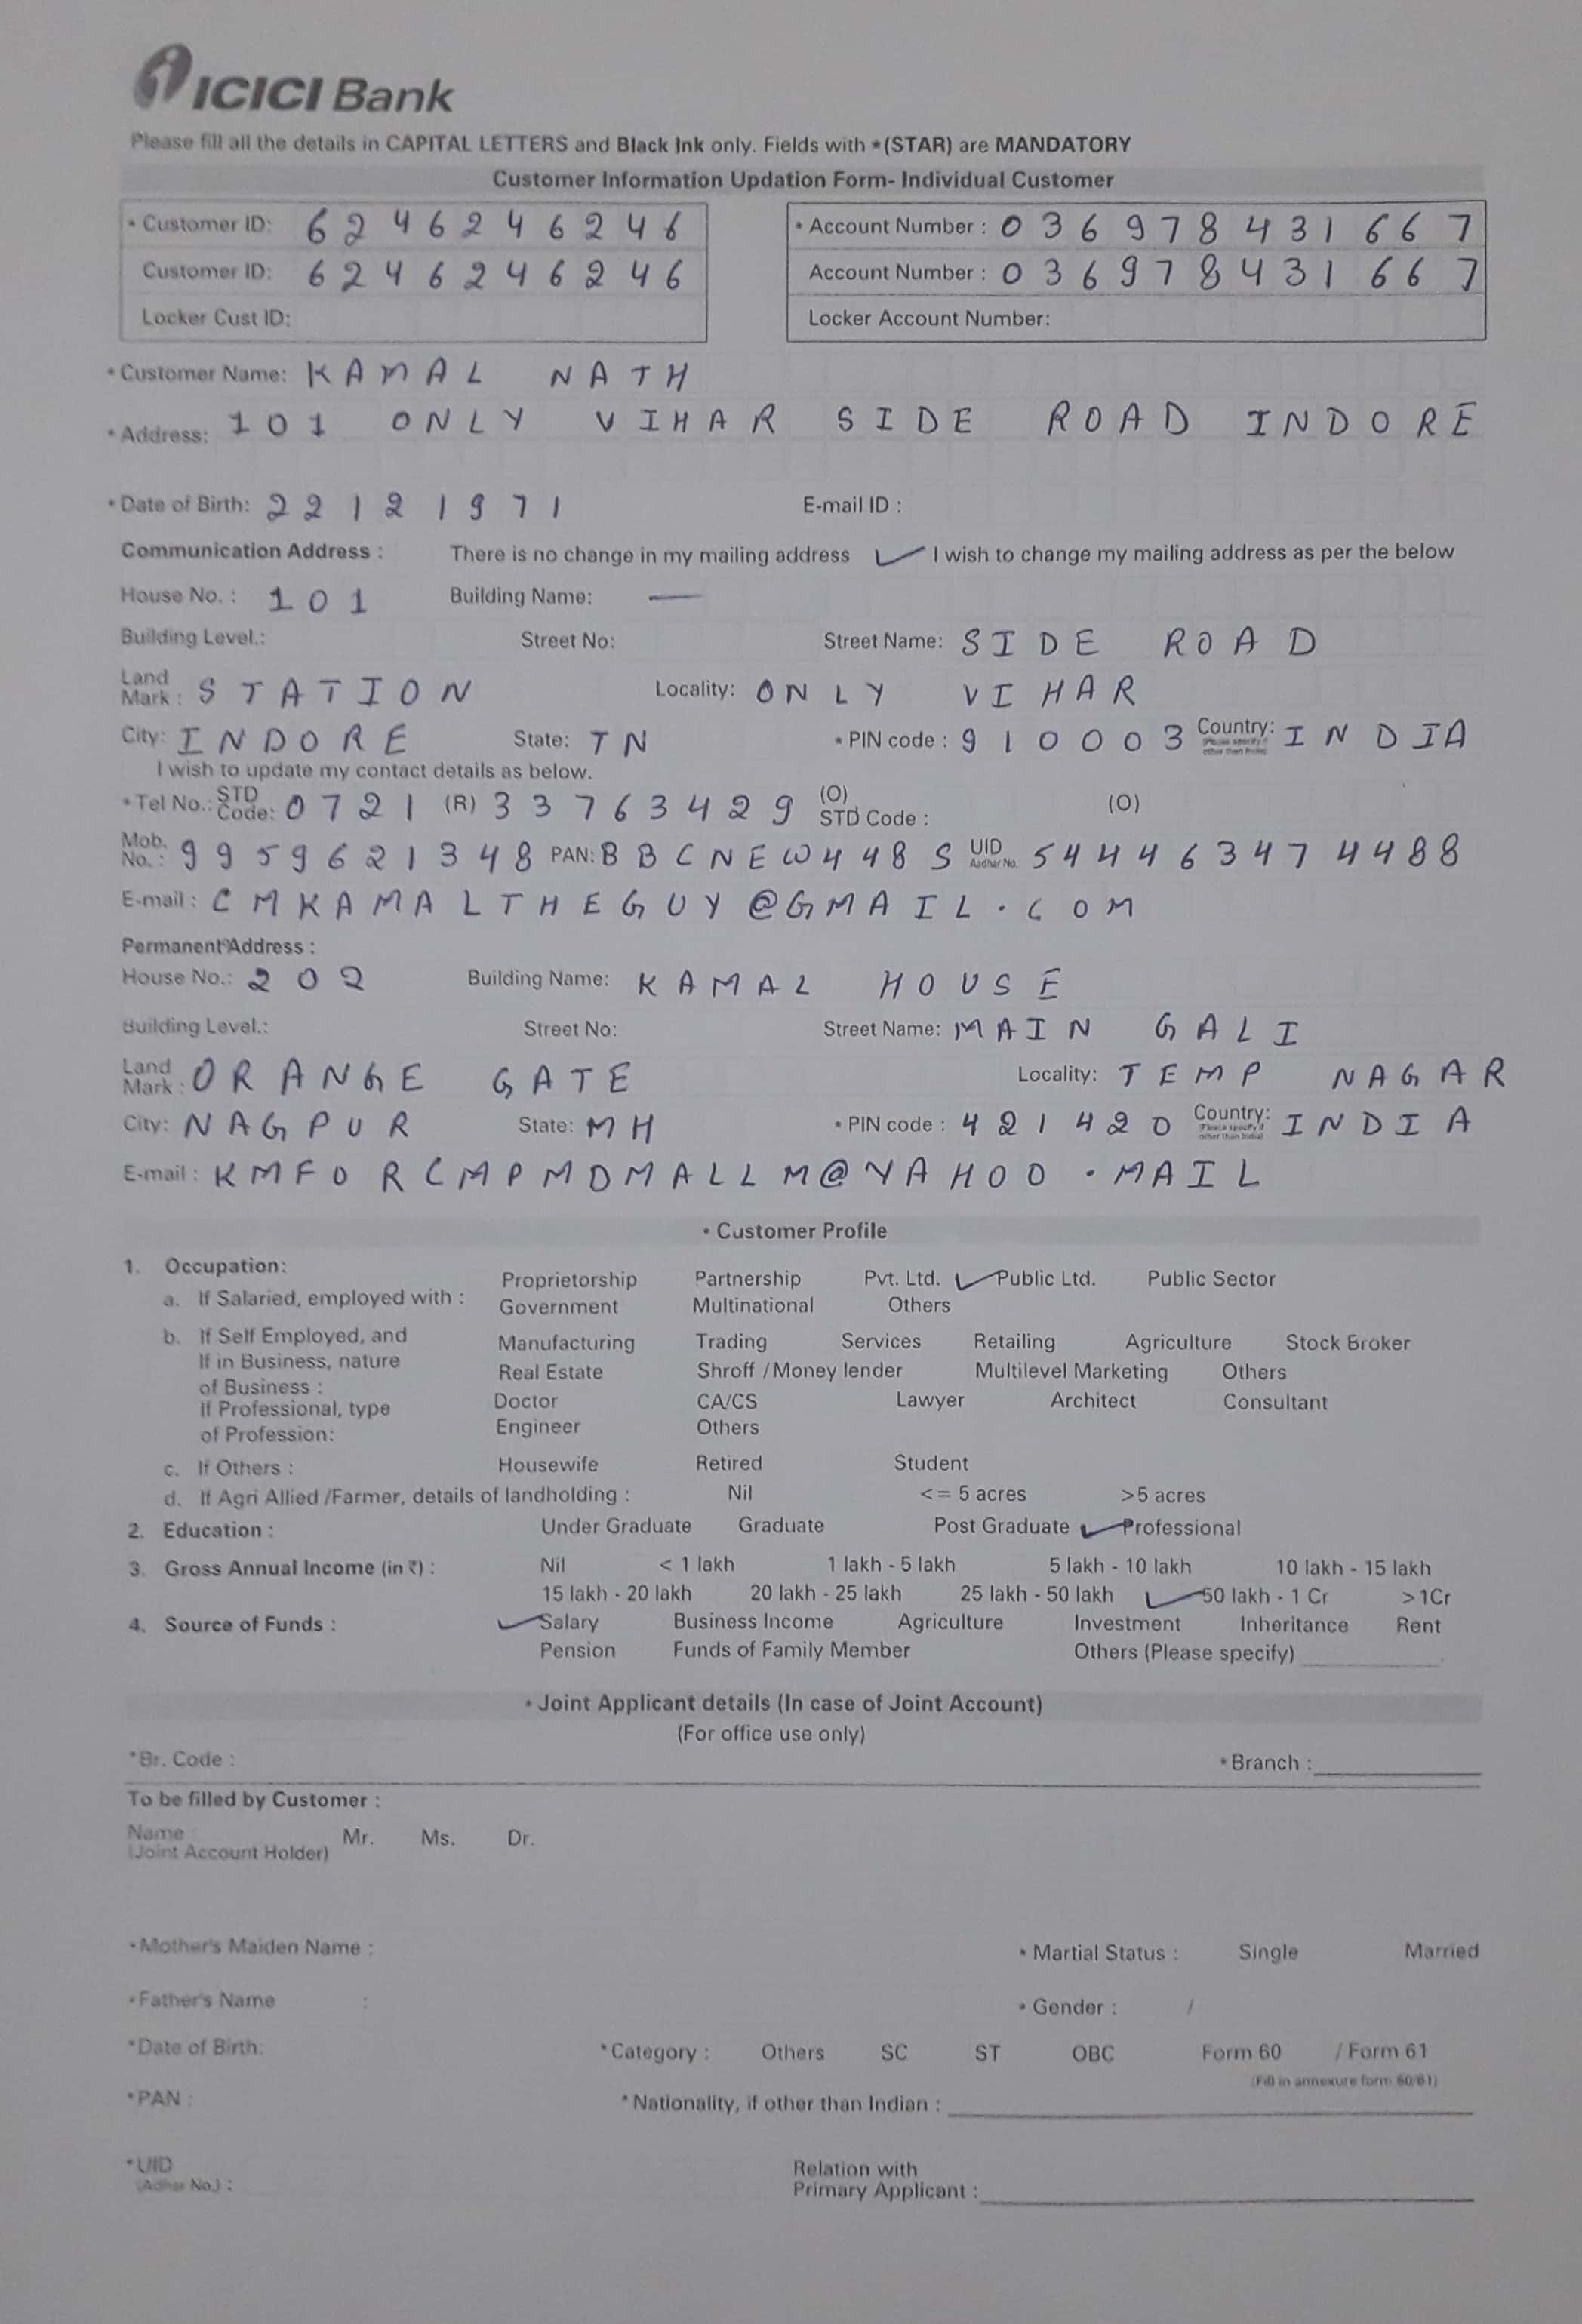 ICICI Bank
Please fill all the details in CAPITAL LETTERS and Black Ink only. Fields with *(STAR) are MANDATORY
Customer Information Updation Form- Individual Customer
* Customer ID: 6246246246 * Account Number : 036978431667
Customer ID: 6246246246 Account Number : 036978431667
Locker Cust ID: Locker Account Number:
* Customer Name: KAMAL NATH
* Address: 101 ONLY VIHAR SIDE ROAD INDORE
* Date of Birth: 22121971 E-mail ID :
Communication Address : There is no change in my mailing address ✓ I wish to change my mailing address as per the below
House No. : 101 Building Name: —
Building Level.: Street No: Street Name: SIDE ROAD
Land Mark : STATION Locality: ONLY VIHAR
City: INDORE State: TN * PIN code : 910003 Country: (Please specify if other than India) INDIA
I wish to update my contact details as below.
* Tel No.: STD Code: 0721 (R) 33763429 (O) STD Code : (O)
Mob. No. : 9959621348 PAN: BBCNEW448S UID Aadhar No. 544463474488
E-mail : CMKAMALTHEGUY@GMAIL.COM
Permanent Address :
House No.: 202 Building Name: KAMAL HOUSE
Building Level.: Street No: Street Name: MAIN GALI
Land Mark : ORANGE GATE Locality: TEMP NAGAR
City: NAGPUR State: MH * PIN code : 421420 Country: (Please specify if other than India) INDIA
E-mail : KMFORCMPMDMALLM@YAHOO.MAIL
* Customer Profile
1. Occupation:
a. If Salaried, employed with : Proprietorship Partnership Pvt. Ltd. ✓ Public Ltd. Public Sector
Government Multinational Others
b. If Self Employed, and If in Business, nature of Business : Manufacturing Trading Services Retailing Agriculture Stock Broker
Real Estate Shroff / Money lender Multilevel Marketing Others
If Professional, type of Profession: Doctor CA/CS Lawyer Architect Consultant
Engineer Others
c. If Others : Housewife Retired Student
d. If Agri Allied /Farmer, details of landholding : Nil <= 5 acres >5 acres
2. Education : Under Graduate Graduate Post Graduate ✓ Professional
3. Gross Annual Income (in ₹) : Nil < 1 lakh 1 lakh - 5 lakh 5 lakh - 10 lakh 10 lakh - 15 lakh
15 lakh - 20 lakh 20 lakh - 25 lakh 25 lakh - 50 lakh ✓ 50 lakh - 1 Cr >1Cr
4. Source of Funds : ✓ Salary Business Income Agriculture Investment Inheritance Rent
Pension Funds of Family Member Others (Please specify)
* Joint Applicant details (In case of Joint Account)
(For office use only)
*Br. Code : * Branch :
To be filled by Customer :
Name (Joint Account Holder) Mr. Ms. Dr.
* Mother's Maiden Name : * Martial Status : Single Married
* Father's Name : * Gender : /
*Date of Birth: *Category : Others SC ST OBC Form 60 / Form 61
(Fill in annexure form 60/61)
*PAN : *Nationality, if other than Indian :
*UID (Adhar No.) : Relation with Primary Applicant :